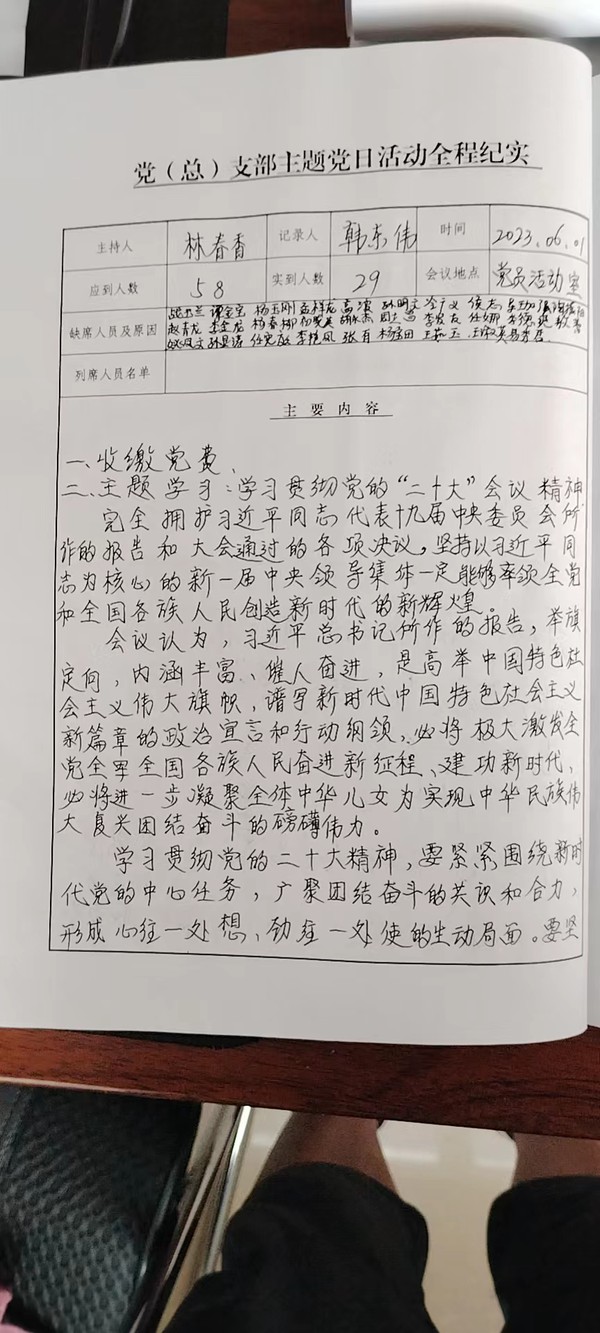 党（总）支部主题党日活动全程纪实
主持人 林春香 记录人 韩东伟 时间 2023.06.01
应到人数 58 实到人数 29 会议地点 党员活动室
缺席人员及原因
列席人员名单
主要内容
一、收缴党费、
二、主题学习：学习贯彻党的“二十大”会议精神
完全拥护习近平同志代表十九届中央委员会所
作的报告和大会通过的各项决议，坚持以习近平同
志为核心的新一届中央领导集体一定能够率领全党
和全国各族人民创造新时代的新辉煌。
会议认为，习近平总书记所作的报告，举旗
定向，内涵丰富、催人奋进，是高举中国特色社
会主义伟大旗帜，谱写新时代中国特色社会主义
新篇章的政治宣言和行动纲领，必将极大激发全
党全军全国各族人民奋进新征程、建功新时代，
必将进一步凝聚全体中华儿女为实现中华民族伟
大复兴团结奋斗的磅礴伟力。
学习贯彻党的二十大精神，要紧紧围绕新时
代党的中心任务，广聚团结奋斗的共识和合力，
形成心往一处想、劲往一处使的生动局面。要坚